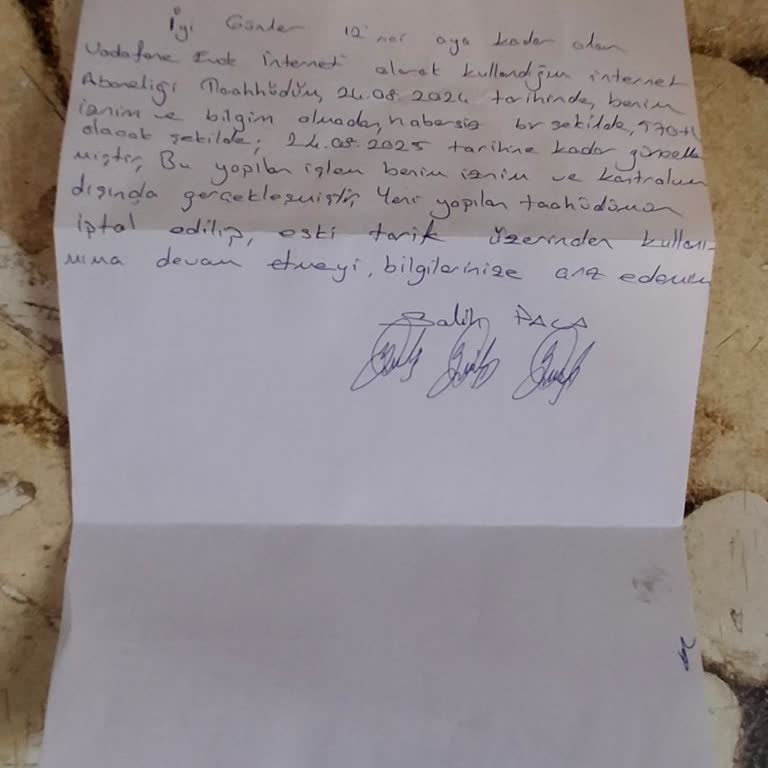 İyi Günler 12'nci aya kadar olan
Vodafone Evde İnternet olarak kullandığım internet
Aboneliği Taahhüdüm, 24.08.2024 tarihinde, benim
iznim ve bilgim olmadan, habersiz bir şekilde, 570 tl
olacak şekilde, 24.08.2025 tarihine kadar güncelle
miştir, Bu yapılan işlem benim iznim ve kontrolüm
dışında gerçekleşmiştir, Yeni yapılan taahüdümün
iptal edilip, eski tarife üzerinden kullanı-
mıma devam etmeyi, bilgilerinize arz ederim
Salih PACA